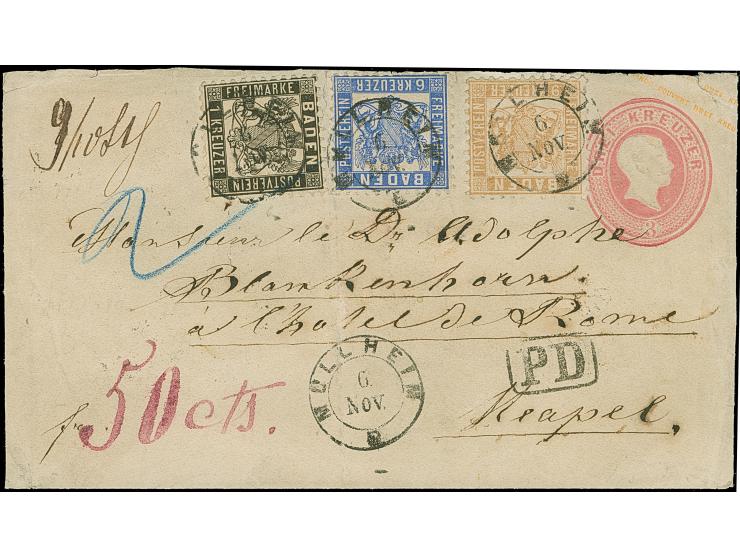 FREIMARKE
1 KREUZER
BADEN
POSTVEREIN
6 KREUZER
POSTVEREIN
FREIMARKE
BADEN
POSTVEREIN
BADEN
MÜLLHEIM
6
NOV.
DREI KREUZER
3
2
Monsieur le Dr Adolphe
Blankenhorn.
à l'hôtel de Rome
MÜLLHEIM
6
NOV.
PD
fr. 50 cts.
Neapel.